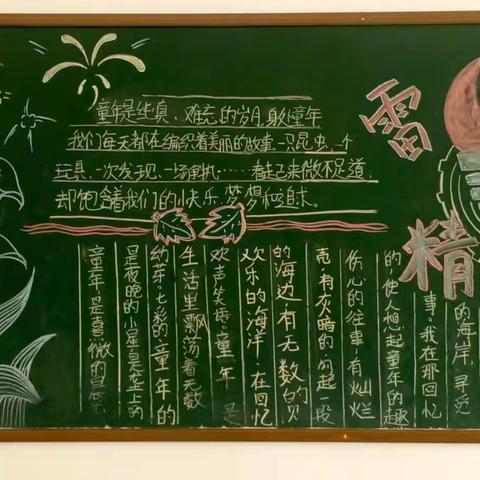 童年是生息、难忘的岁月,
我们每天都在编织着美丽的故事一只昆虫、一个
玩具、一次发现、一场争执……看起来微不足道,
却饱含着我们的快乐、梦想和追求。
雷
精
的海岸,寻觅
事。我在那回忆
的,使人想起童年的趣
伤心的往事,有灿烂
壳,有灰暗的,勾起一段
的海边有无数的贝
欢乐的海洋,在回忆
欢声笑语。童年是
生活里飘荡着无数
幼芽。七彩的童年的
是夜晚的小星,是
童年是熹微的晨